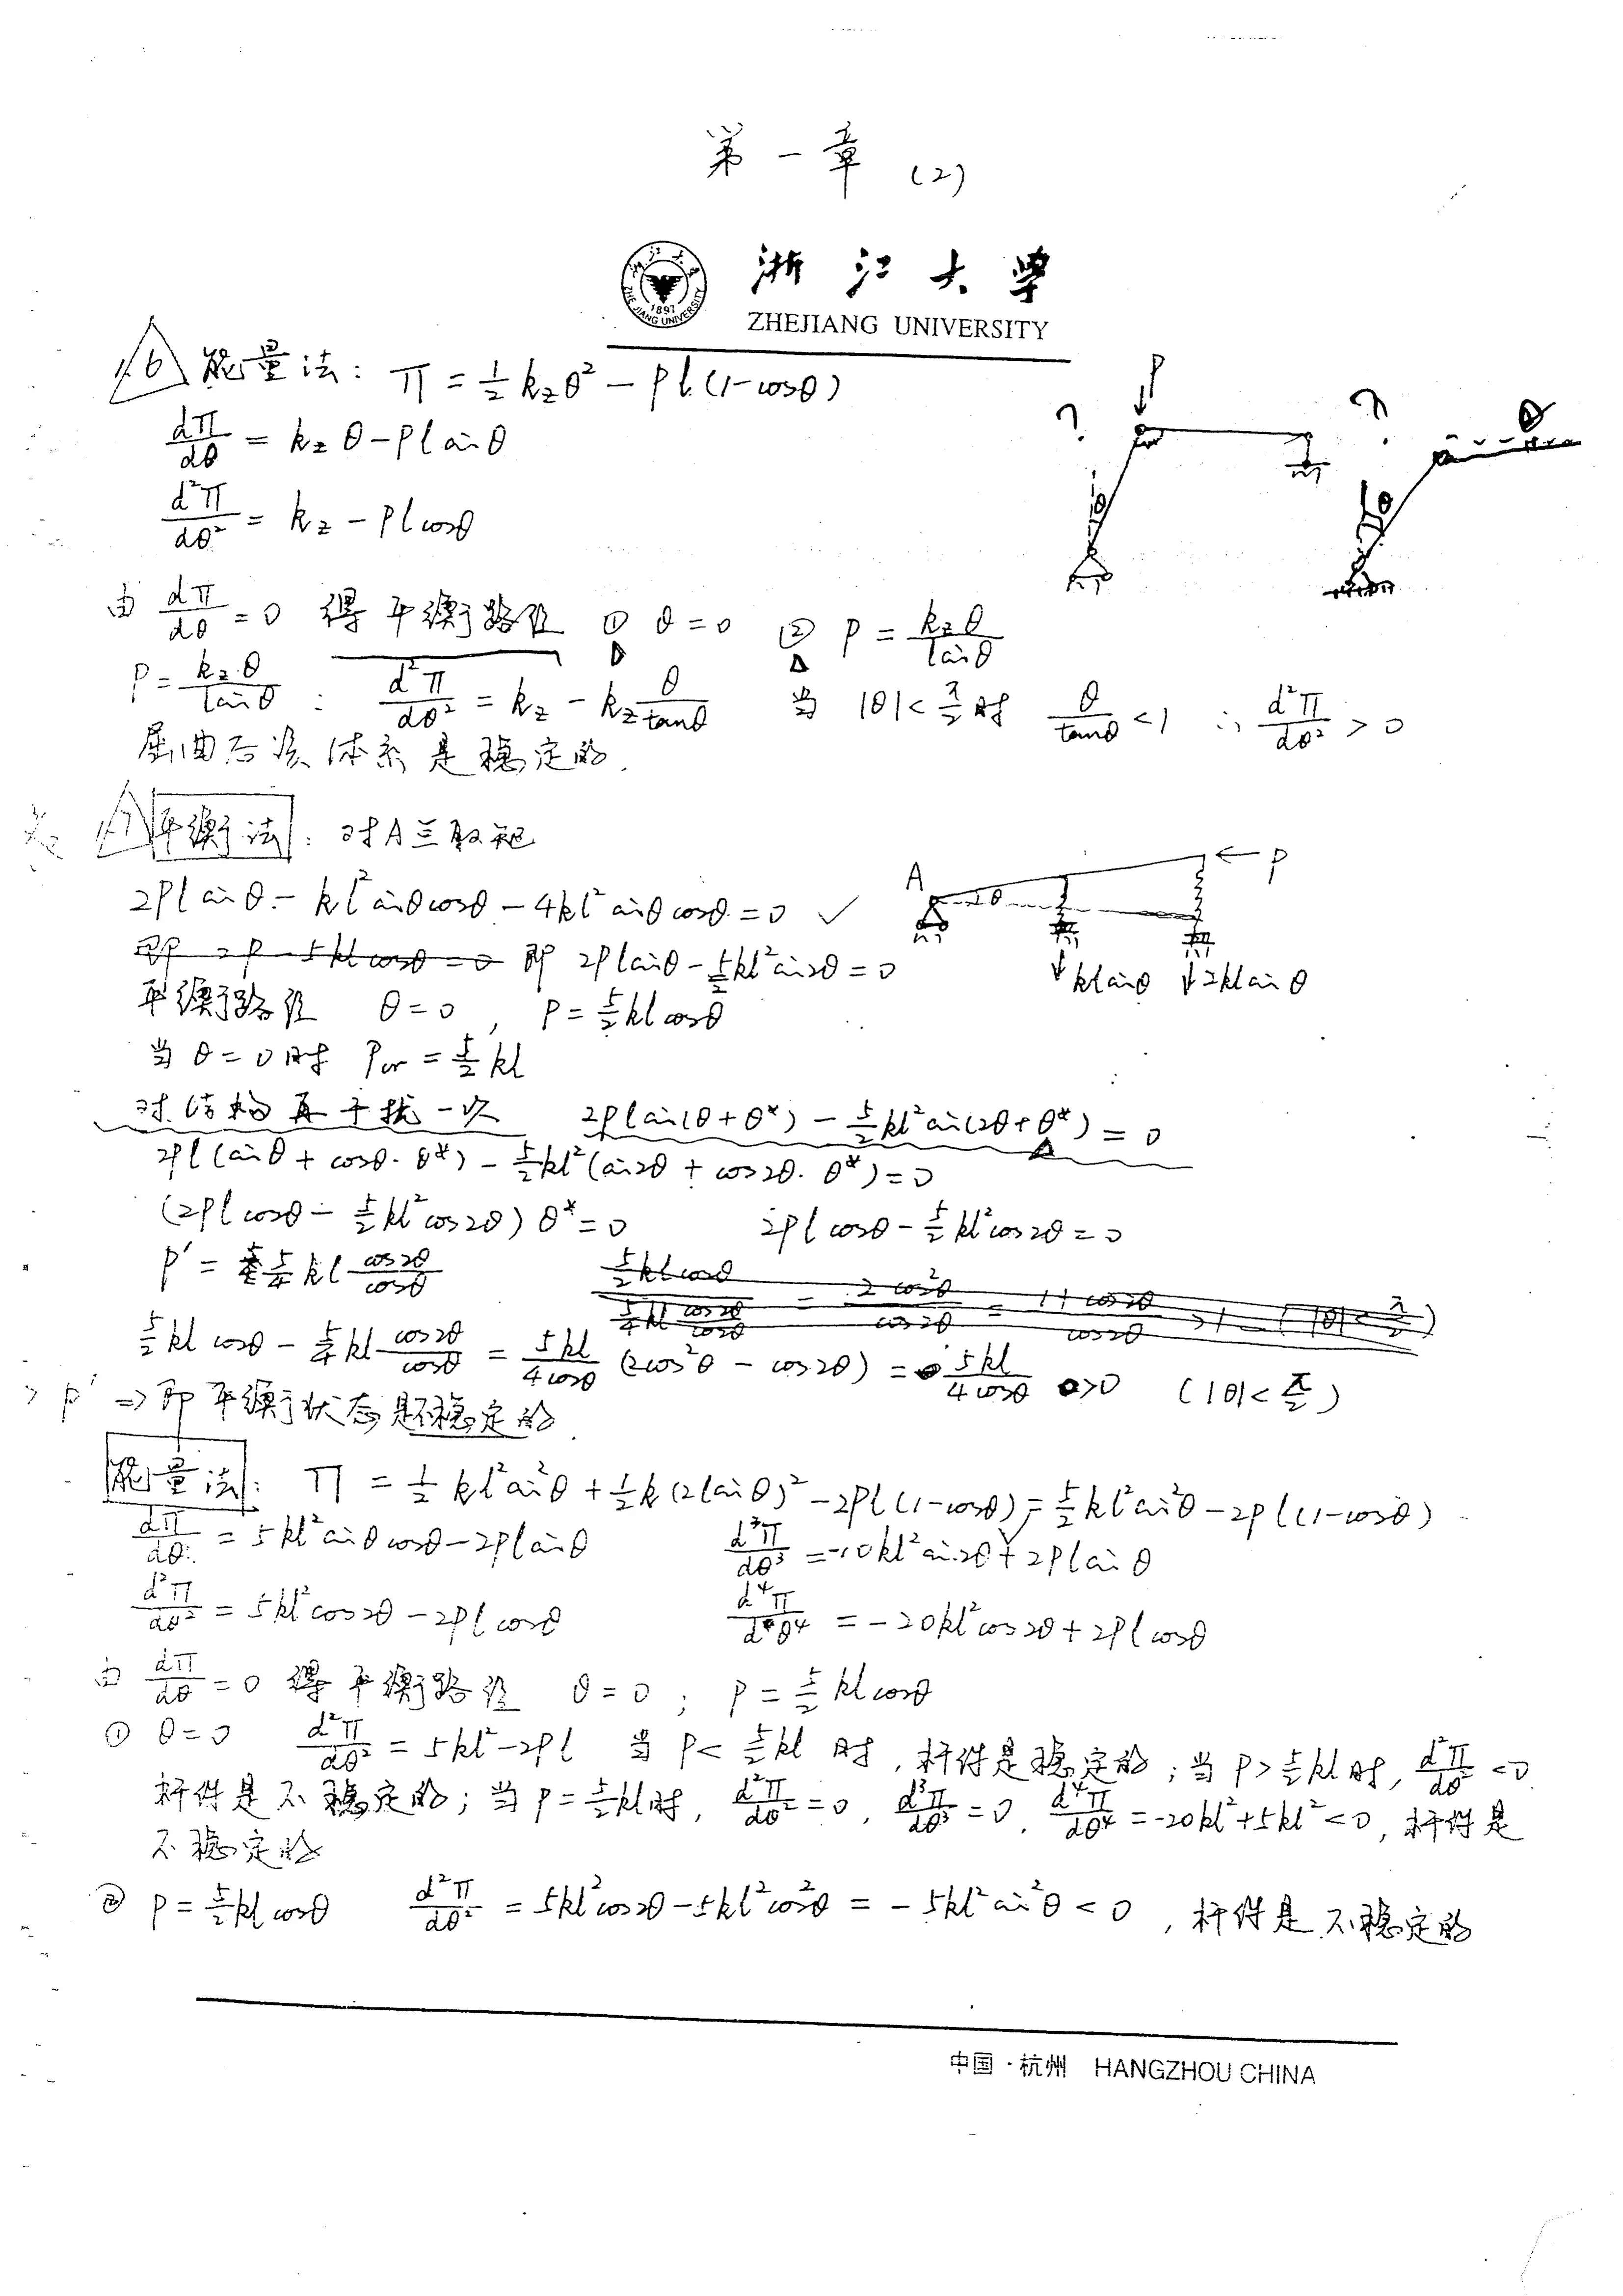 第一章 (2)
浙江大学
ZHEJIANG UNIVERSITY
1897
ZHEJIANG UNIVERSITY
1.6 能量法: Π = ½ k₂θ² − Pl(1−cosθ)
dΠ/dθ = k₂θ − Pl sinθ
d²Π/dθ² = k₂ − Pl cosθ
P
θ
? ?
θ
θ
由 dΠ/dθ = 0 得平衡路径 ① θ=0 ② P = k₂θ/(l sinθ)
P = k₂θ/(l sinθ) : d²Π/dθ² = k₂ − k₂ θ/tanθ 当 |θ|<π/2 时 θ/tanθ <1 ∴ d²Π/dθ² > 0
屈曲后该体系是稳定的.
1.7 平衡法: 对A点取矩
2Pl sinθ − kl² sinθcosθ − 4kl² sinθcosθ = 0 ✓
A θ P
即 2P − 5kl cosθ = 0 即 2Pl sinθ − 5/2 kl² sin2θ = 0
kl sinθ 2kl sinθ
平衡路径 θ=0 , P = 5/2 kl cosθ
当 θ=0 时 Pcr = 5/2 kl
对结构再干扰一次 2Pl sin(θ+θ*) − 5/2 kl² sin(2θ+θ*) = 0
2Pl(sinθ + cosθ·θ*) − 5/2 kl²(sin2θ + cos2θ·θ*) = 0
(2Pl cosθ − 5/2 kl² cos2θ) θ* = 0 2Pl cosθ − 5/2 kl² cos2θ = 0
P' = 5/4 kl cos2θ/cosθ
5/2 kl cosθ − 5/4 kl cos2θ/cosθ = 5kl/(4cosθ) (2cos²θ − cos2θ) = 5kl/(4cosθ) >0 (|θ|<π/2)
> P' ⇒ 即平衡状态是不稳定的
能量法: Π = ½ kl² sin²θ + ½ k(2l sinθ)² − 2Pl(1−cosθ) = 5/2 kl² sin²θ − 2Pl(1−cosθ)
dΠ/dθ = 5kl² sinθcosθ − 2Pl sinθ d³Π/dθ³ = −10kl² sin2θ + 2Pl sinθ
d²Π/dθ² = 5kl² cos2θ − 2Pl cosθ d⁴Π/dθ⁴ = −20kl² cos2θ + 2Pl cosθ
由 dΠ/dθ = 0 得平衡路径 θ=0 ; P = 5/2 kl cosθ
① θ=0 d²Π/dθ² = 5kl² − 2Pl 当 P< 5/2 kl 时, 杆件是稳定的; 当 P> 5/2 kl 时, d²Π/dθ² <0
杆件是不稳定的; 当 P= 5/2 kl 时, d²Π/dθ² =0, d³Π/dθ³ =0, d⁴Π/dθ⁴ = −20kl² + 5kl² <0, 杆件是
不稳定的
② P = 5/2 kl cosθ d²Π/dθ² = 5kl² cos2θ − 5kl² cos²θ = −5kl² sin²θ < 0 , 杆件是不稳定的
中国·杭州 HANGZHOU CHINA